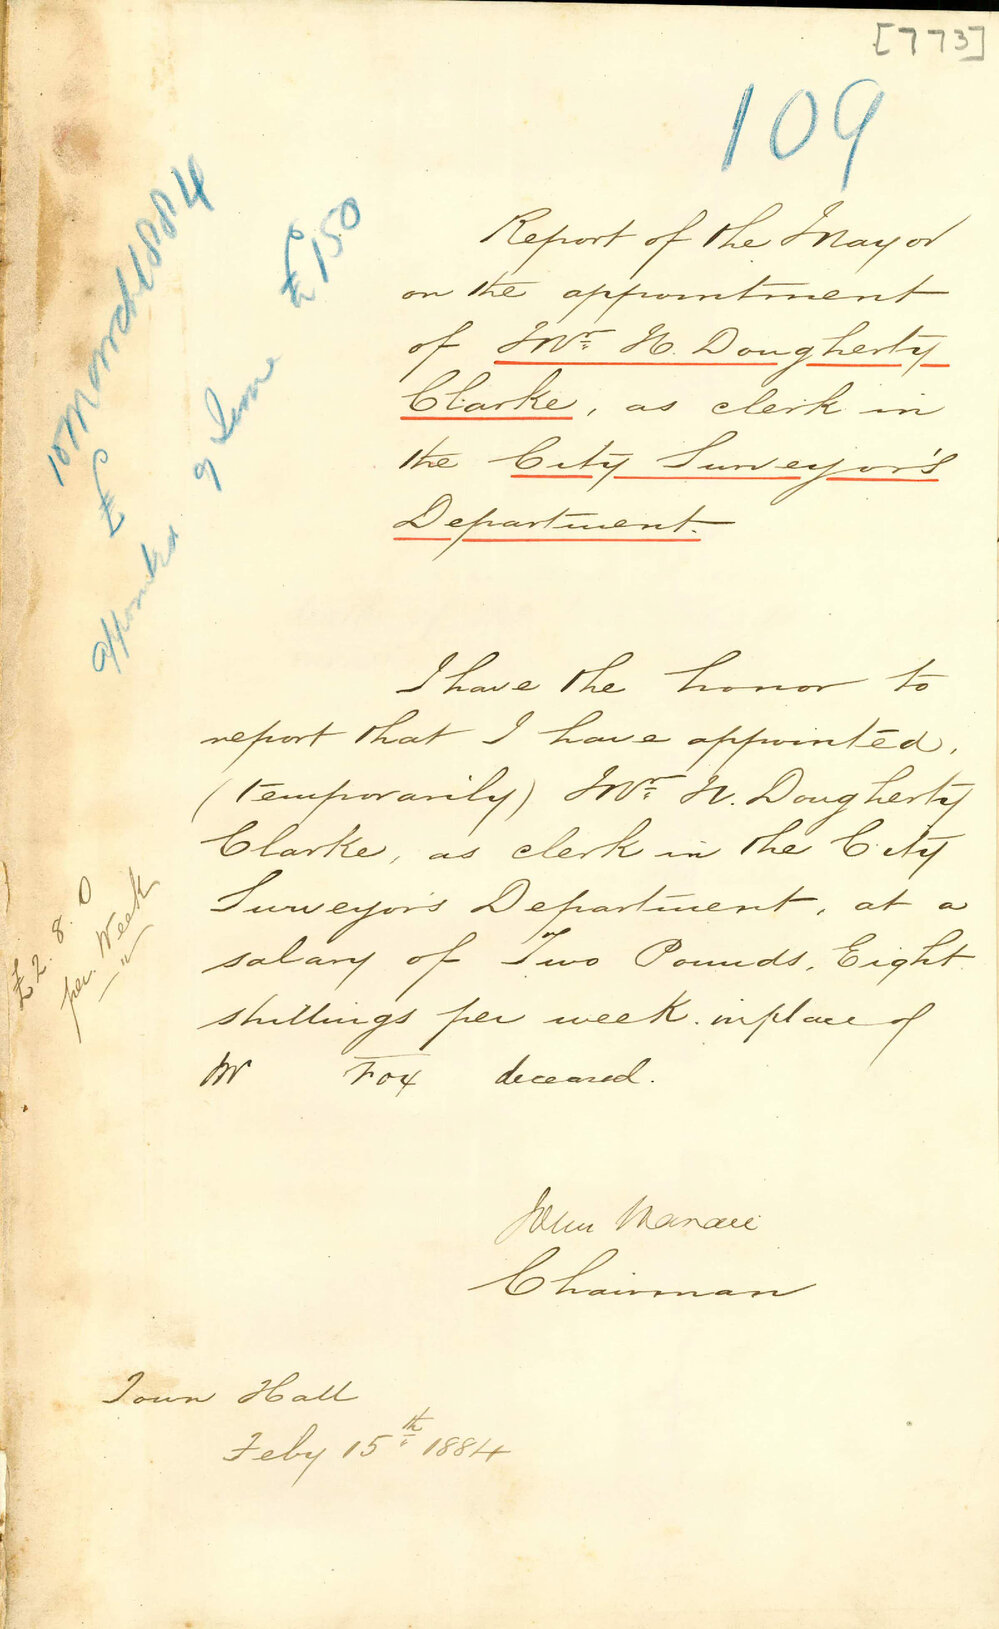 [773]
109
10 March 1884
£
appointed
£150
9 June
Report of the Mayor
on the appointment
of Mr H. Dougherty
Clarke, as clerk in
the City Surveyor's
Department.
I have the honor to
report that I have appointed,
(temporarily) Mr H. Dougherty
Clarke, as clerk in the City
Surveyor's Department, at a
salary of Two Pounds, Eight
shillings per week. in place of
Mr Fox deceased.
£2. 8. 0
per Week
John
Chairman
Town Hall
Feby 15th 1884